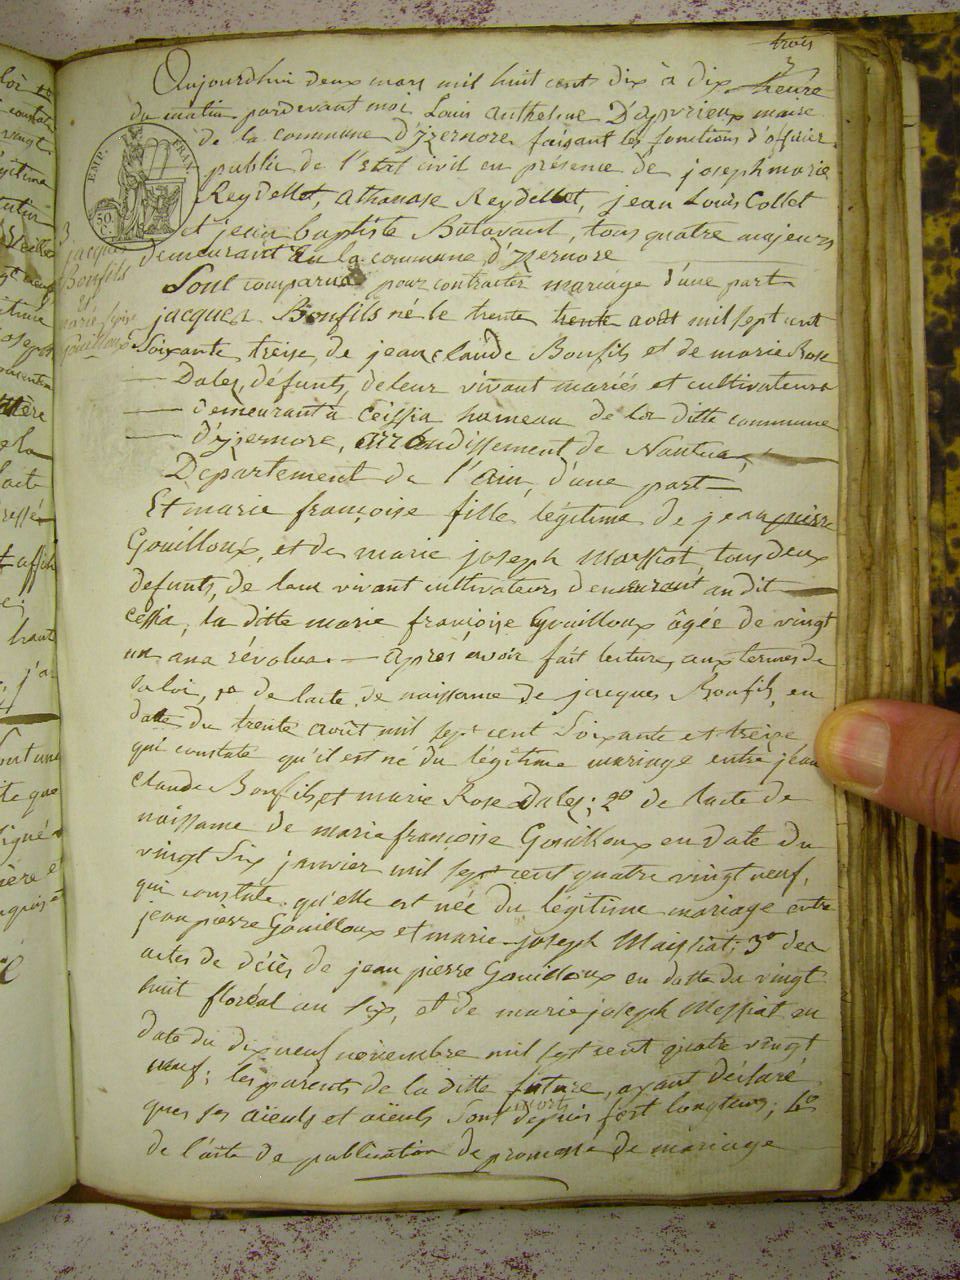 trois
3
Aujourdhui deux mars mil huit cent dix à dix heure
du matin pardevant moi Louis Anthelme D'apvrieux maire
de la commune d'Izernore faisant les fonctions d'officier
public de l'Etat civil en présence de joseph marie
Reydellet, athanase Reydellet, jean Louis Collet
et jean baptiste Batavant, tous quatre majeurs
demeurant en la commune d'Izernore
EMP. FRAN.
50 C.
3
jacques
Bonfils
et
marie fçoise
Gouilloux
Sont comparus pour contracter mariage d'une part
jacques Bonfils né le trente trente août mil sept cent
Soixante treize, de jean claude Bonfils et de marie Rose
Dalez, défunts, de leur vivant mariés et cultivateurs
demeurant à Ceissia hameau de la ditte commune
d'Izernore, arrondissement de Nantua,
Département de l'Ain, d'une part
Et marie françoise fille légitime de jean pierre
Gouilloux, et de marie joseph Massiat, tous deux
defunts, de leur vivant cultivateurs demeurant au dit
cessia, la ditte marie françoise Gouilloux âgée de vingt
un ans révolus. — Après avoir fait lecture, aux termes de
la loi, 1o de l'acte de naissance de jacques Bonfils, en
datte du trente août mil sept cent Soixante et treize
qui constate qu'il est né du légitime mariage entre jean
Claude Bonfils et marie Rose Dalez; 2o de l'acte de
naissance de marie françoise Gouilloux en date du
vingt Six janvier mil sept cent quatre vingt neuf,
qui constate qu'elle est née du légitime mariage entre
jean pierre Gouilloux et marie joseph Massiat; 3o des
actes de décès de jean pierre Gouilloux en datte du vingt
huit floréal an Six, et de marie joseph Messiat en
date du dix neuf novembre mil sept cent quatre vingt
neuf; les parents de la ditte future, ayant déclaré
que ses aïeuls et aïeuls Sont morts depuis fort longtems; 4o
de l'acte de publication de promesse de mariage